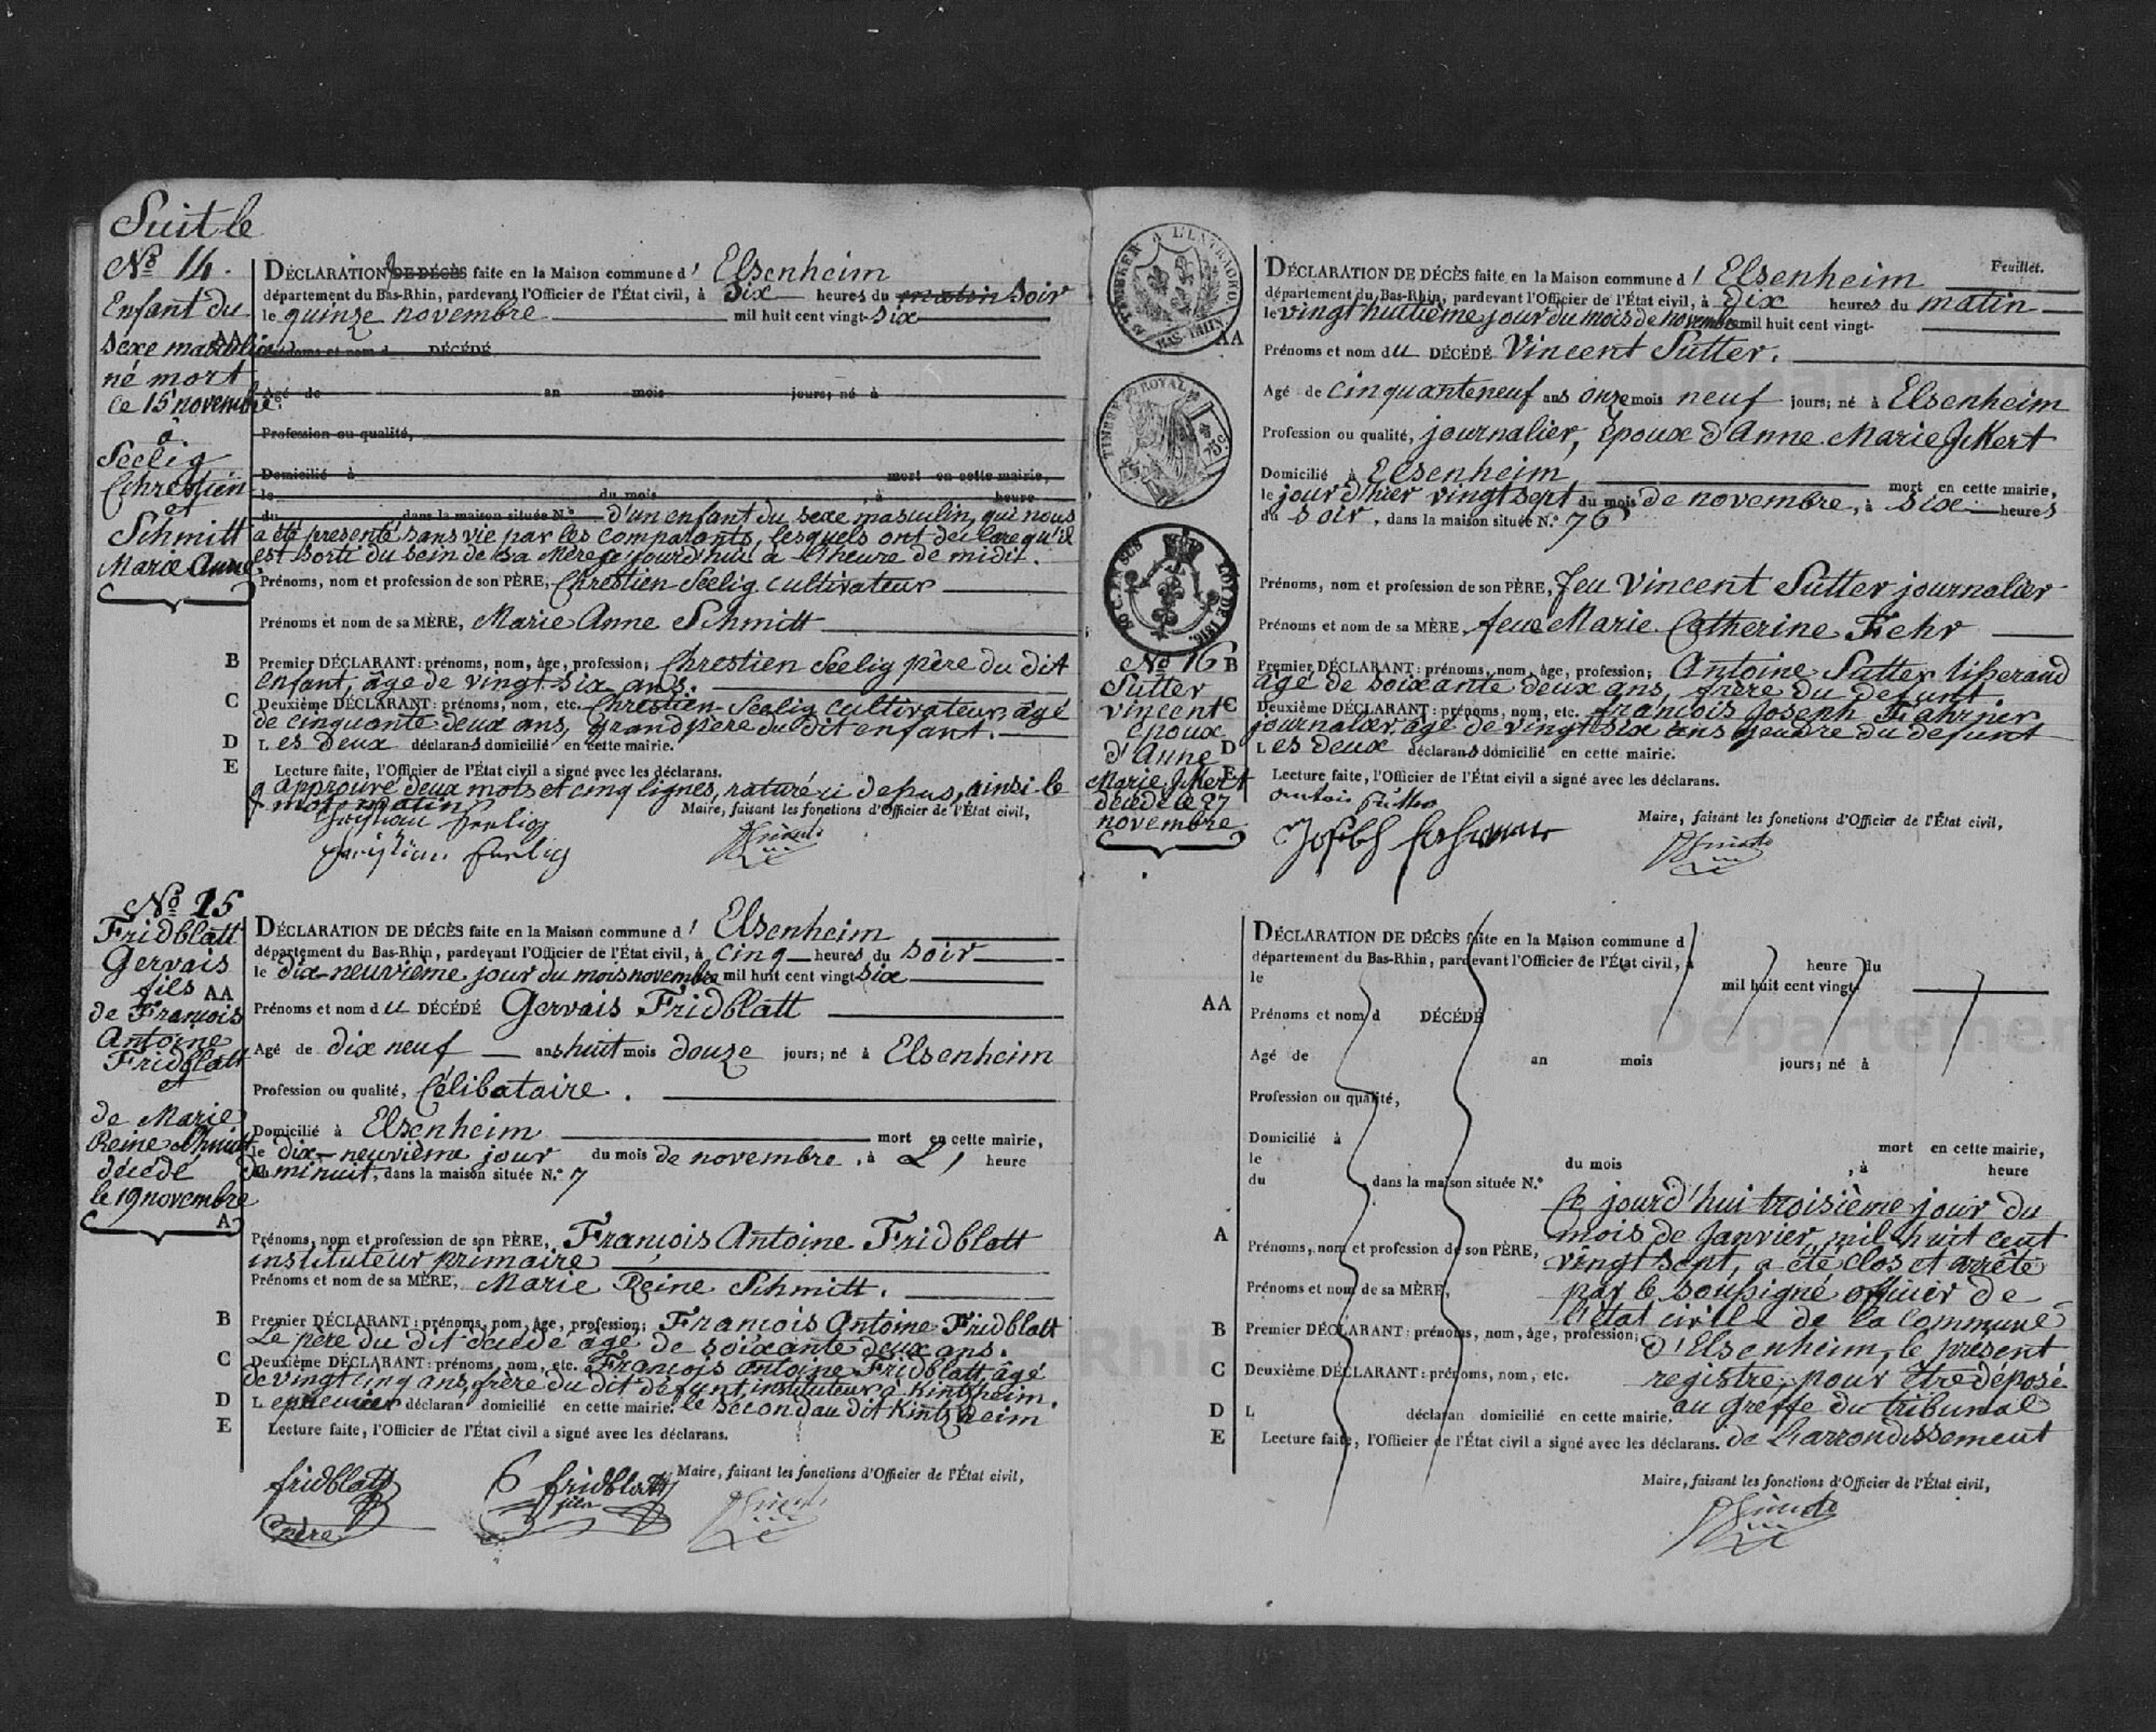 Suit le
No 14.
Enfant du
sexe masculin
né mort
le 15 novembre
à
Seelig
Chrestien
et
Schmitt
Marie Anne
DÉCLARATION DE DÉCÈS faite en la Maison commune d' Elsenheim
département du Bas-Rhin, pardevant l'Officier de l'État civil, à Six heures du matin soir
le quinze novembre mil huit cent vingt-six
AA Prénoms et nom d DÉCÉDÉ
Agé de an mois jours; né à
Profession ou qualité,
Domicilié à mort en cette mairie,
le du mois , à heure
du dans la maison située N.o d'un enfant du sexe masculin, qui nous
a été presenté sans vie par les comparants, lesquels ont declaré qu'il
est sorti du sein de sa Mère ce jourd'hui à l'heure de midit.
Prénoms, nom et profession de son PÈRE, Chrestien Seelig cultivateur
Prénoms et nom de sa MÈRE, Marie Anne Schmitt
B Premier DÉCLARANT: prénoms, nom, âge, profession; Chrestien Seelig père du dit
enfant, âge de vingt six ans.
C Deuxième DÉCLARANT: prénoms, nom, etc. Chrestien Seelig cultivateur, âgé
de cinquante deux ans, grand père du dit enfant.
D L es deux déclarans domicilié en cette mairie.
E Lecture faite, l'Officier de l'État civil a signé avec les déclarans.
approuvé deux mots et cinq lignes, raturé ci depus, ainsi le
mot matin
Maire, faisant les fonctions d'Officier de l'État civil,
No 15
Fridblatt
Gervais
fils
de François
Antoine
Fridblatt
et
de Marie
Reine Schmitt
décédé
le 19 novembre
DÉCLARATION DE DÉCÈS faite en la Maison commune d' Elsenheim
département du Bas-Rhin, pardevant l'Officier de l'État civil, à cinq heures du soir
le dix-neuvième jour du mois novembre mil huit cent vingt-six
AA Prénoms et nom du DÉCÉDÉ Gervais Fridblatt
Agé de dix neuf ans huit mois douze jours; né à Elsenheim
Profession ou qualité, Célibataire.
Domicilié à Elsenheim mort en cette mairie,
le dix-neuvième jour du mois de novembre, à L' heure
de minuit, dans la maison située N.o 7
A Prénoms, nom et profession de son PÈRE, François Antoine Fridblatt
instituteur primaire
Prénoms et nom de sa MÈRE, Marie Reine Schmitt.
B Premier DÉCLARANT: prénoms, nom, âge, profession; François Antoine Fridblatt
Le père du dit décédé âgé de soixante deux ans.
C Deuxième DÉCLARANT: prénoms, nom, etc. François antoine Fridblatt, âgé
de vingt cinq ans, frère du dit défunt, instituteur à Kintzheim.
D L epremier déclaran domicilié en cette mairie. le second au dit Kintzheim
E Lecture faite, l'Officier de l'État civil a signé avec les déclarans.
Maire, faisant les fonctions d'Officier de l'État civil,
fridblatt
père
fridblatt
fils
TIMBRE ROYAL
75 c
LOI DE 1816.
No 16
Sutter
vincent
epoux
d'Anne
Marie Jckert
décédé le 27
novembre
Feuillet.
DÉCLARATION DE DÉCÈS faite en la Maison commune d' Elsenheim
département du Bas-Rhin, pardevant l'Officier de l'État civil, à dix heures du matin
le vingt huitième jour du mois de novembre mil huit cent vingt-
AA Prénoms et nom du DÉCÉDÉ Vincent Sutter.
Agé de cinquante neuf ans onze mois neuf jours; né à Elsenheim
Profession ou qualité, journalier, Epoux d'Anne Marie Jckert
Domicilié à Elsenheim mort en cette mairie,
le jour d'hier vingt sept du mois de novembre, à six heures
du soir, dans la maison située N.o 76
Prénoms, nom et profession de son PÈRE, feu Vincent Sutter journalier
Prénoms et nom de sa MÈRE, feue Marie Catherine Fehr
B Premier DÉCLARANT: prénoms, nom, âge, profession; Antoine Sutter tisserand
âgé de soixante deux ans, frère du defunt.
C Deuxième DÉCLARANT: prénoms, nom, etc. francois Joseph Fahrner
journalier, âgé de vingt six ans gendre du defunt
D L es deux déclarans domicilié en cette mairie.
E Lecture faite, l'Officier de l'État civil a signé avec les déclarans.
Maire, faisant les fonctions d'Officier de l'État civil,
DÉCLARATION DE DÉCÈS faite en la Maison commune d
département du Bas-Rhin, pardevant l'Officier de l'État civil, à heure du
le mil huit cent vingt-
AA Prénoms et nom d DÉCÉDÉ
Agé de an mois jours; né à
Profession ou qualité,
Domicilié à mort en cette mairie,
le du mois , à heure
du , dans la maison située N.o
Ce jourd'hui troisième jour du
mois de Janvier, mil huit cent
A Prénoms, nom et profession de son PÈRE, vingt sept, a été clos et arrêté
Prénoms et nom de sa MÈRE, par le soussigné officier de
l'état civile de la commune
B Premier DÉCLARANT: prénoms, nom, âge, profession; d'Elsenheim, le présent
C Deuxième DÉCLARANT: prénoms, nom, etc. registre, pour être déposé
D L déclaran domicilié en cette mairie. au greffe du tribunal
E Lecture faite, l'Officier de l'État civil a signé avec les déclarans. de L'arrondissement
Maire, faisant les fonctions d'Officier de l'État civil,